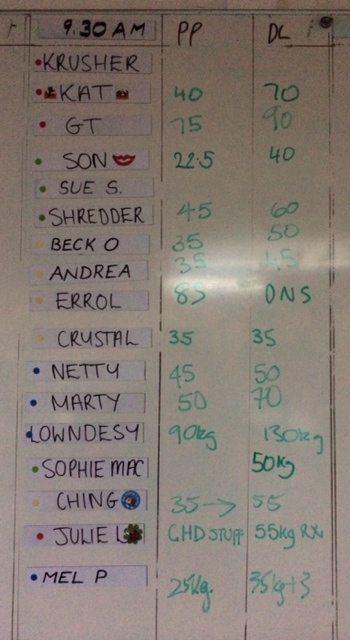 9.30 AM PP DL
KRUSHER
KAT 40 70
GT 75 90
SON 22.5 40
SUE S.
SHREDDER 45 60
BECK O 35 50
ANDREA 35 45
ERROL 85 DNS
CRYSTAL 35 35
NETTY 45 50
MARTY 50 70
LOWNDESY 90kg 130kg
SOPHIE MAC 50kg
CHING 35 → 55
JULIE L GHD STUFF 55kg RX
MEL P 25kg. 35kg+3